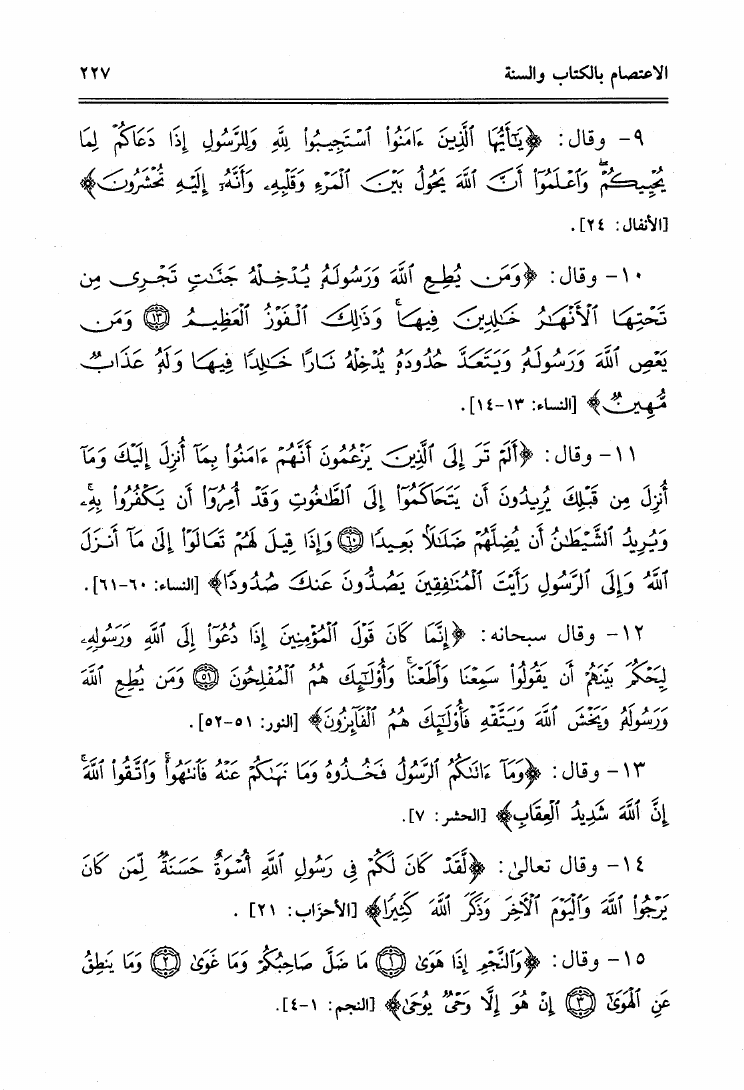 الاعتصام بالكتاب والسنة ٢٢٧
٩- وقال: ﴿يَٰٓأَيُّهَا ٱلَّذِينَ ءَامَنُوا۟ ٱسْتَجِيبُوا۟ لِلَّهِ وَلِلرَّسُولِ إِذَا دَعَاكُمْ لِمَا
يُحْيِيكُمْ ۖ وَٱعْلَمُوٓا۟ أَنَّ ٱللَّهَ يَحُولُ بَيْنَ ٱلْمَرْءِ وَقَلْبِهِۦ وَأَنَّهُۥٓ إِلَيْهِ تُحْشَرُونَ﴾
[الأنفال: ٢٤].
١٠- وقال: ﴿وَمَن يُطِعِ ٱللَّهَ وَرَسُولَهُۥ يُدْخِلْهُ جَنَّٰتٍ تَجْرِى مِن
تَحْتِهَا ٱلْأَنْهَٰرُ خَٰلِدِينَ فِيهَا ۚ وَذَٰلِكَ ٱلْفَوْزُ ٱلْعَظِيمُ ١٣ وَمَن
يَعْصِ ٱللَّهَ وَرَسُولَهُۥ وَيَتَعَدَّ حُدُودَهُۥ يُدْخِلْهُ نَارًا خَٰلِدًا فِيهَا وَلَهُۥ عَذَابٌ
مُّهِينٌ﴾ [النساء: ١٣-١٤].
١١- وقال: ﴿أَلَمْ تَرَ إِلَى ٱلَّذِينَ يَزْعُمُونَ أَنَّهُمْ ءَامَنُوا۟ بِمَآ أُنزِلَ إِلَيْكَ وَمَآ
أُنزِلَ مِن قَبْلِكَ يُرِيدُونَ أَن يَتَحَاكَمُوٓا۟ إِلَى ٱلطَّٰغُوتِ وَقَدْ أُمِرُوٓا۟ أَن يَكْفُرُوا۟ بِهِۦ ۚ
وَيُرِيدُ ٱلشَّيْطَٰنُ أَن يُضِلَّهُمْ ضَلَٰلًۢا بَعِيدًا ٦٠ وَإِذَا قِيلَ لَهُمْ تَعَالَوْا۟ إِلَىٰ مَآ أَنزَلَ
ٱللَّهُ وَإِلَى ٱلرَّسُولِ رَأَيْتَ ٱلْمُنَٰفِقِينَ يَصُدُّونَ عَنكَ صُدُودًا﴾ [النساء: ٦٠-٦١].
١٢- وقال سبحانه: ﴿إِنَّمَا كَانَ قَوْلَ ٱلْمُؤْمِنِينَ إِذَا دُعُوٓا۟ إِلَى ٱللَّهِ وَرَسُولِهِۦ
لِيَحْكُمَ بَيْنَهُمْ أَن يَقُولُوا۟ سَمِعْنَا وَأَطَعْنَا ۚ وَأُو۟لَٰٓئِكَ هُمُ ٱلْمُفْلِحُونَ ٥١ وَمَن يُطِعِ ٱللَّهَ
وَرَسُولَهُۥ وَيَخْشَ ٱللَّهَ وَيَتَّقْهِ فَأُو۟لَٰٓئِكَ هُمُ ٱلْفَآئِزُونَ﴾ [النور: ٥١-٥٢].
١٣- وقال: ﴿وَمَآ ءَاتَىٰكُمُ ٱلرَّسُولُ فَخُذُوهُ وَمَا نَهَىٰكُمْ عَنْهُ فَٱنتَهُوا۟ ۚ وَٱتَّقُوا۟ ٱللَّهَ ۖ
إِنَّ ٱللَّهَ شَدِيدُ ٱلْعِقَابِ﴾ [الحشر: ٧].
١٤- وقال تعالىٰ: ﴿لَّقَدْ كَانَ لَكُمْ فِى رَسُولِ ٱللَّهِ أُسْوَةٌ حَسَنَةٌ لِّمَن كَانَ
يَرْجُوا۟ ٱللَّهَ وَٱلْيَوْمَ ٱلْـَٔاخِرَ وَذَكَرَ ٱللَّهَ كَثِيرًا﴾ [الأحزاب: ٢١].
١٥- وقال: ﴿وَٱلنَّجْمِ إِذَا هَوَىٰ ١ مَا ضَلَّ صَاحِبُكُمْ وَمَا غَوَىٰ ٢ وَمَا يَنطِقُ
عَنِ ٱلْهَوَىٰٓ ٣ إِنْ هُوَ إِلَّا وَحْىٌ يُوحَىٰ﴾ [النجم: ١-٤].